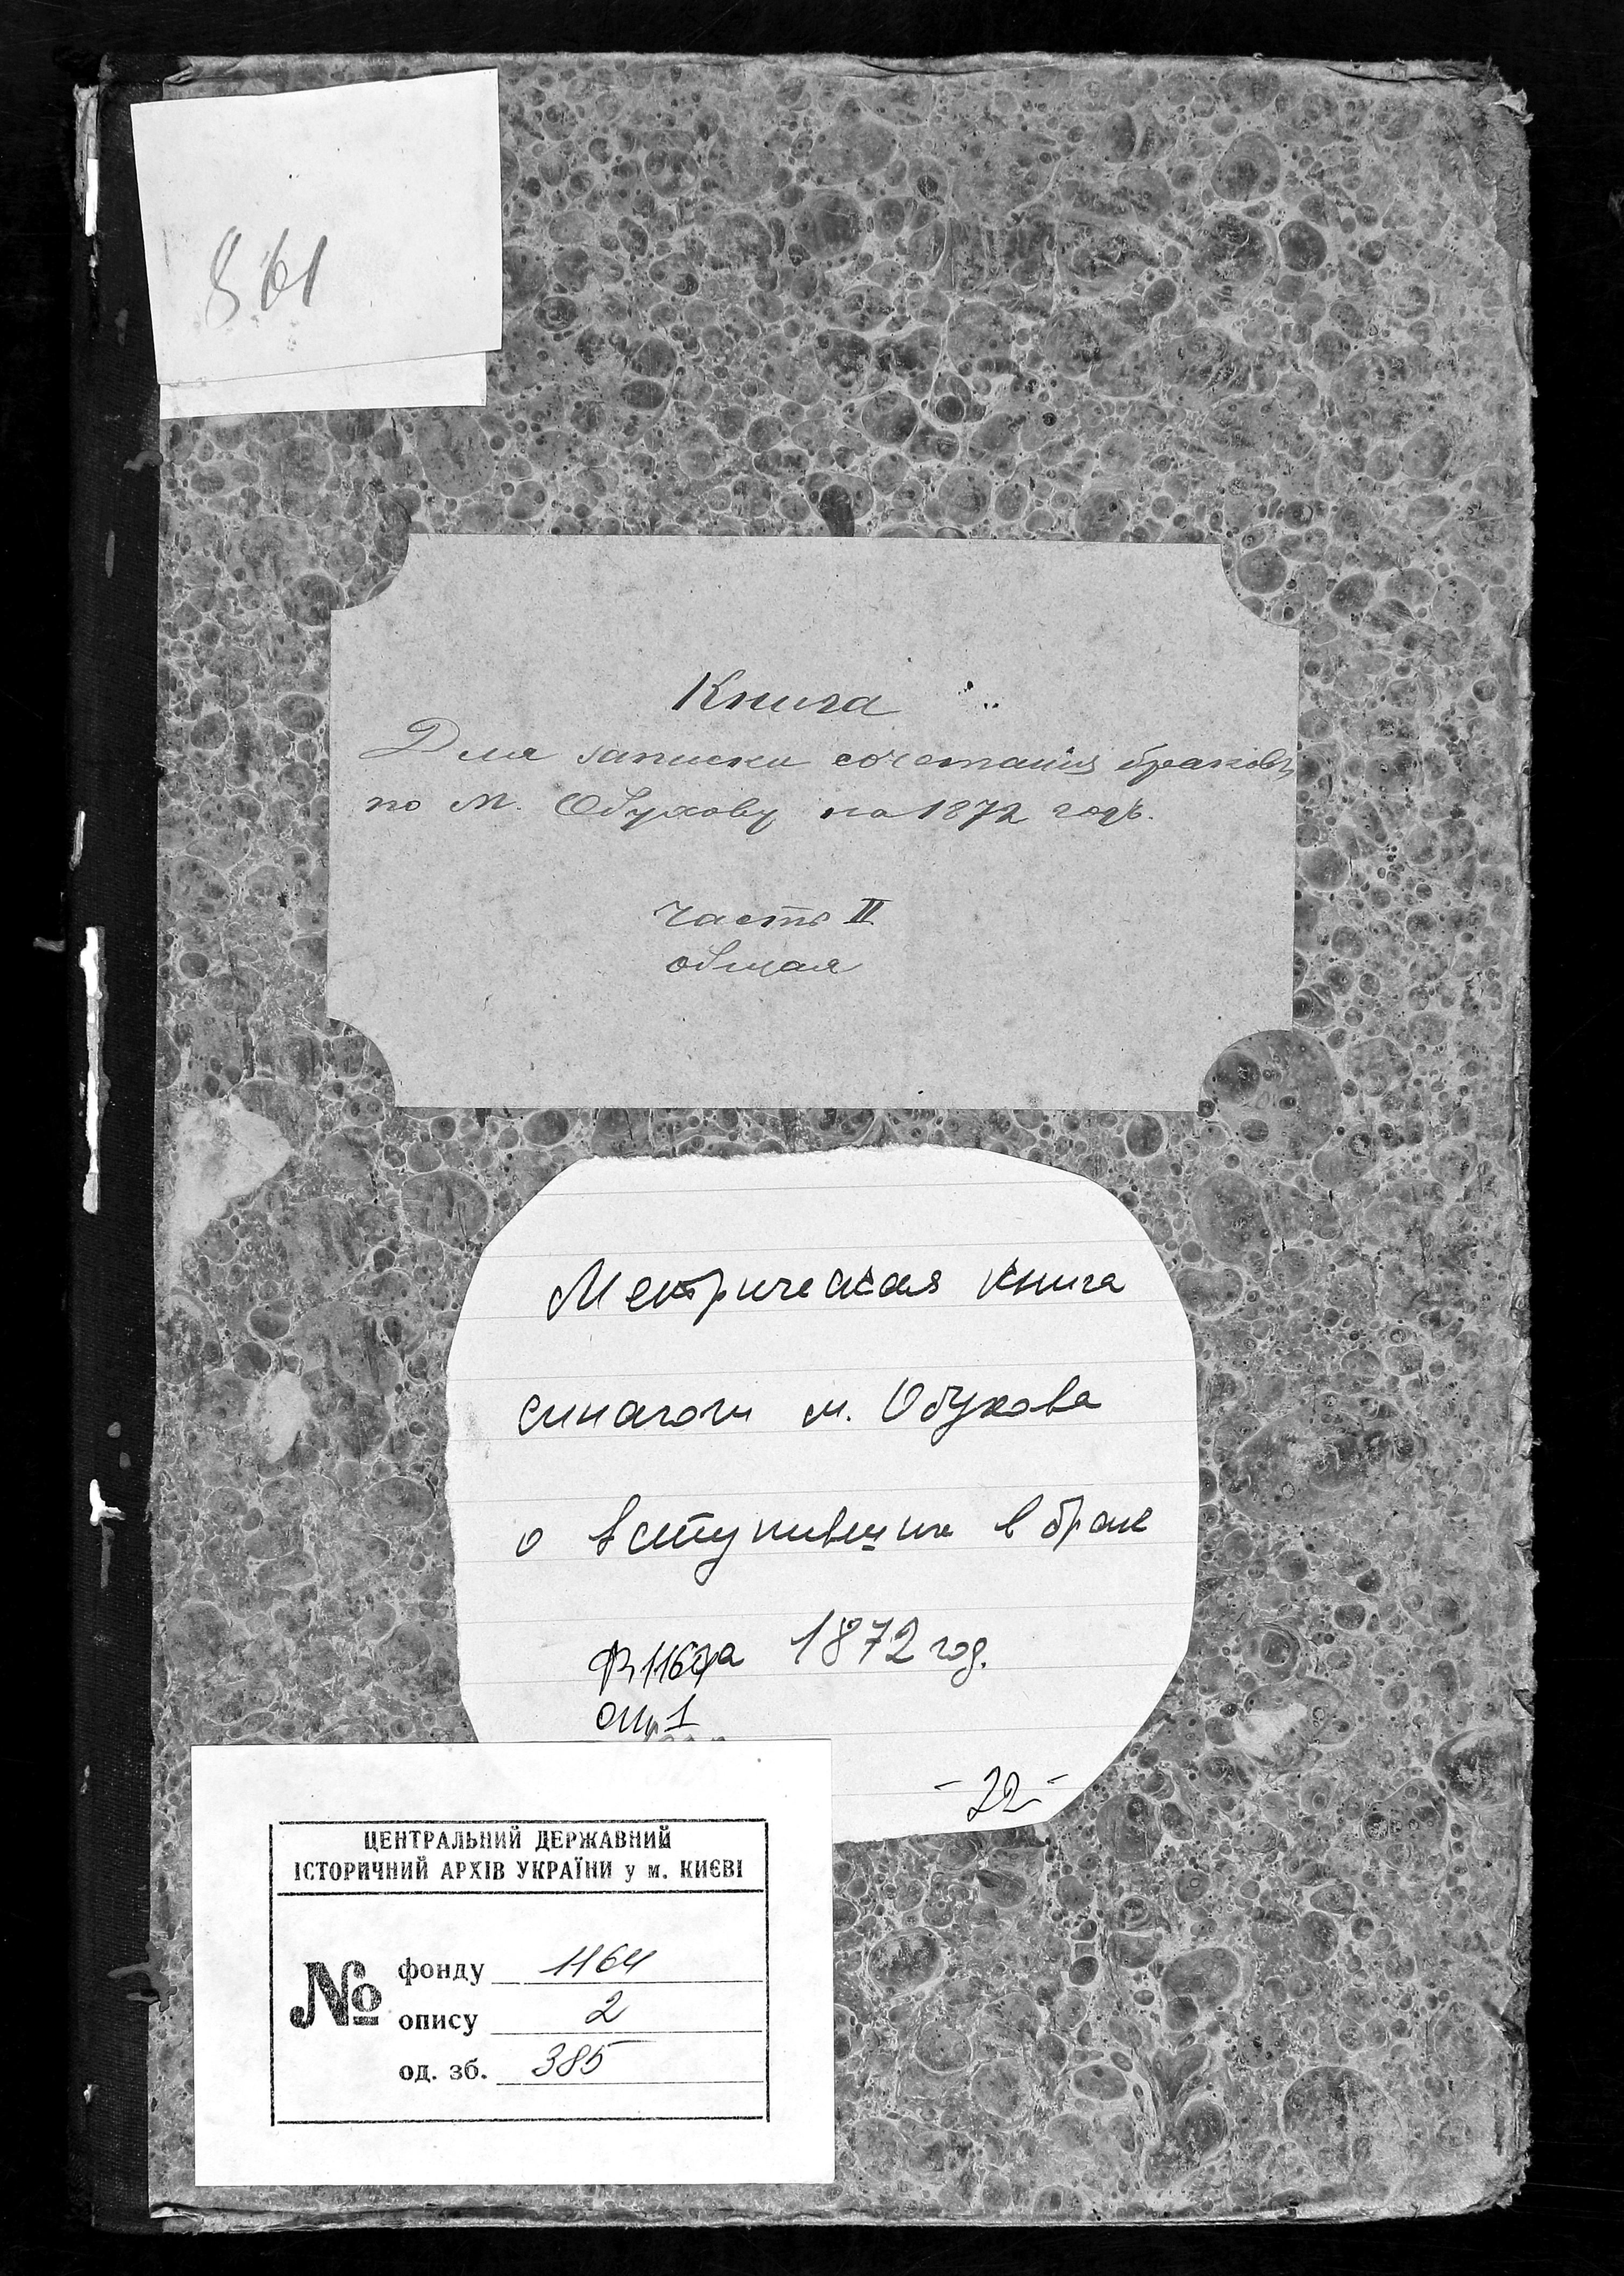 861
Книга
Для записки сочетанія браковъ
по М. Обухову на 1872 годъ.
Часть II
общая
Метрическая книга
синагоги м. Обухова
о вступивших в брак
1872 год.
оп. 1
-22-
ЦЕНТРАЛЬНИЙ ДЕРЖАВНИЙ
ІСТОРИЧНИЙ АРХІВ УКРАЇНИ у м. КИЄВІ
№
фонду 1164
опису 2
од. зб. 385